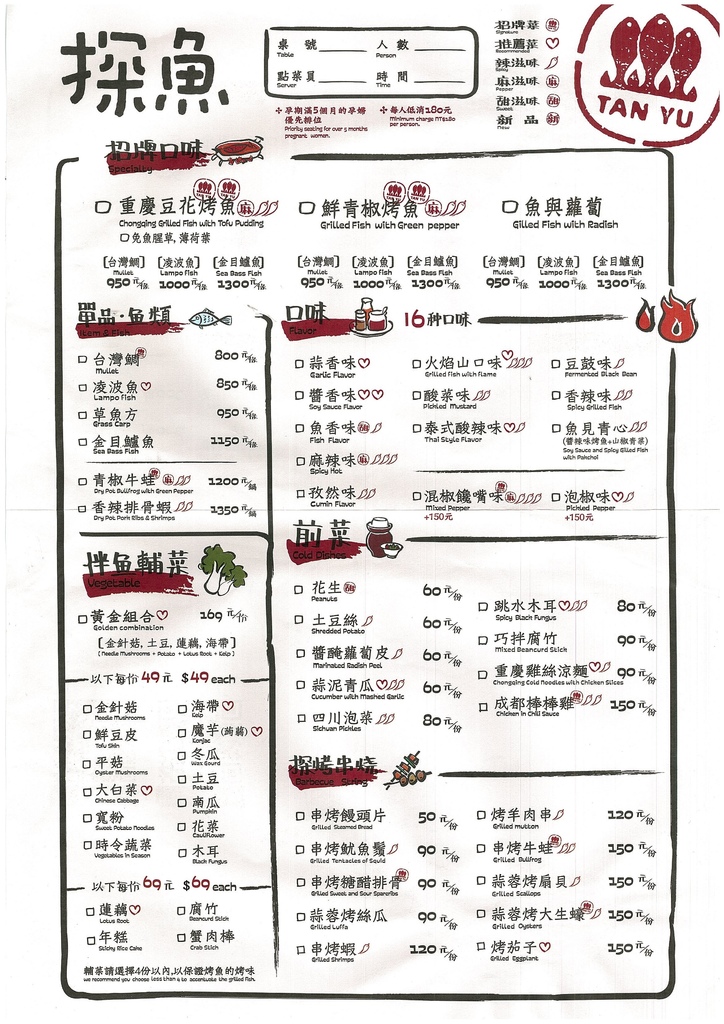 探魚
桌 號 人 數
Table Person
點菜員 時 間
Server Time
早期滿5個月的孕婦
優先排位
Priority seating for over 5 months
pregnant women.
每人低消180元
Minimum charge NT$180
per person.
招牌菜
Signature
推薦菜
Recommended
辣滋味
Spicy
麻滋味 麻
Pepper
甜滋味 甜
Sweet
新 品 新
New
TAN YU
招牌口味
Specialty
重慶豆花烤魚 麻
Chongqing Grilled Fish with Tofu Pudding
免魚腥草,薄荷葉
[台灣鯛] [凌波魚] [金目鱸魚]
Mullet Lampo Fish Sea Bass Fish
950元/條 1000元/條 1300元/條
鮮青椒烤魚 麻
Grilled Fish with Green pepper
[台灣鯛] [凌波魚] [金目鱸魚]
Mullet Lampo Fish Sea Bass Fish
950元/條 1000元/條 1300元/條
魚與蘿蔔
Grilled Fish with Radish
[台灣鯛] [凌波魚] [金目鱸魚]
Mullet Lampo Fish Sea Bass Fish
950元/條 1000元/條 1300元/條
單品·魚類
Item & Fish
台灣鯛 800元/條
Mullet
凌波魚 850元/條
Lampo Fish
草魚方 950元/條
Grass Carp
金目鱸魚 1150元/條
Sea Bass Fish
青椒牛蛙 麻 1200元/鍋
Dry Pot Bullfrog with Green Pepper
香辣排骨蝦 1350元/鍋
Dry Pot Pork Ribs & Shrimps
口味
Flavor
16种口味
蒜香味
Garlic Flavor
醬香味
Soy Sauce Flavor
魚香味 甜
Fish Flavor
麻辣味 麻
Spicy Hot
孜然味
Cumin Flavor
火焰山口味
Grilled Fish with Flame
酸菜味
Pickled Mustard
泰式酸辣味
Thai Style Flavor
混椒饞嘴味 麻
Mixed Pepper
+150元
豆鼓味
Fermented Black Bean
香辣味
Spicy Grilled Fish
魚見青心
(醬辣味烤魚+山椒青菜)
Soy Sauce and Spicy Grilled Fish
with Pakchoi
泡椒味
Pickled Pepper
+150元
拌鱼輔菜
Vegetable
黃金組合 169元/份
Golden combination
[金針菇,土豆,蓮藕,海帶]
[Needle Mushrooms + Potato + Lotus Root + Kelp]
以下每份49元 $49 each
金針菇
Needle Mushrooms
鮮豆皮
Tofu Skin
平菇
Oyster Mushrooms
大白菜
Chinese Cabbage
寬粉
Sweet Potato Noodles
時令蔬菜
Vegetables in Season
海帶
Kelp
魔芋(蒟蒻)
Konjac
冬瓜
Wax Gourd
土豆
Potato
南瓜
Pumpkin
花菜
Cauliflower
木耳
Black Fungus
以下每份69元 $69 each
蓮藕
Lotus Root
年糕
Sticky Rice Cake
腐竹
Beancurd Stick
蟹肉棒
Crab Stick
輔菜請選擇4份以內,以保證烤魚的烤味
We recommend you choose less than 4 to accentuate the grilled fish.
前菜
Cold Dishes
花生 甜 60元/份
Peanuts
土豆絲 60元/份
Shredded Potato
醬醃蘿蔔皮 60元/份
Marinated Radish Peel
蒜泥青瓜 60元/份
Cucumber with Mashed Garlic
四川泡菜 80元/份
Sichuan Pickles
跳水木耳 80元/份
Spicy Black Fungus
巧拌腐竹 90元/份
Mixed Beancurd Stick
重慶雞絲涼麵 90元/份
Chongqing Cold Noodles with Chicken Slices
成都棒棒雞 150元/份
Chicken in Chili Sauce
探烤串烧
Barbecue String
串烤饅頭片 50元/份
Grilled Steamed Bread
串烤魷魚鬚 90元/份
Grilled Tentacles of Squid
串烤糖醋排骨 90元/份
Grilled Sweet and Sour Spareribs
蒜蓉烤絲瓜 90元/份
Grilled Luffa
串烤蝦 120元/份
Grilled Shrimps
烤羊肉串 120元/份
Grilled mutton
串烤牛蛙 150元/份
Grilled Bullfrog
蒜蓉烤扇貝 150元/份
Grilled Scallops
蒜蓉烤大生蠔 150元/份
Grilled Oysters
烤茄子 150元/份
Grilled Eggplant